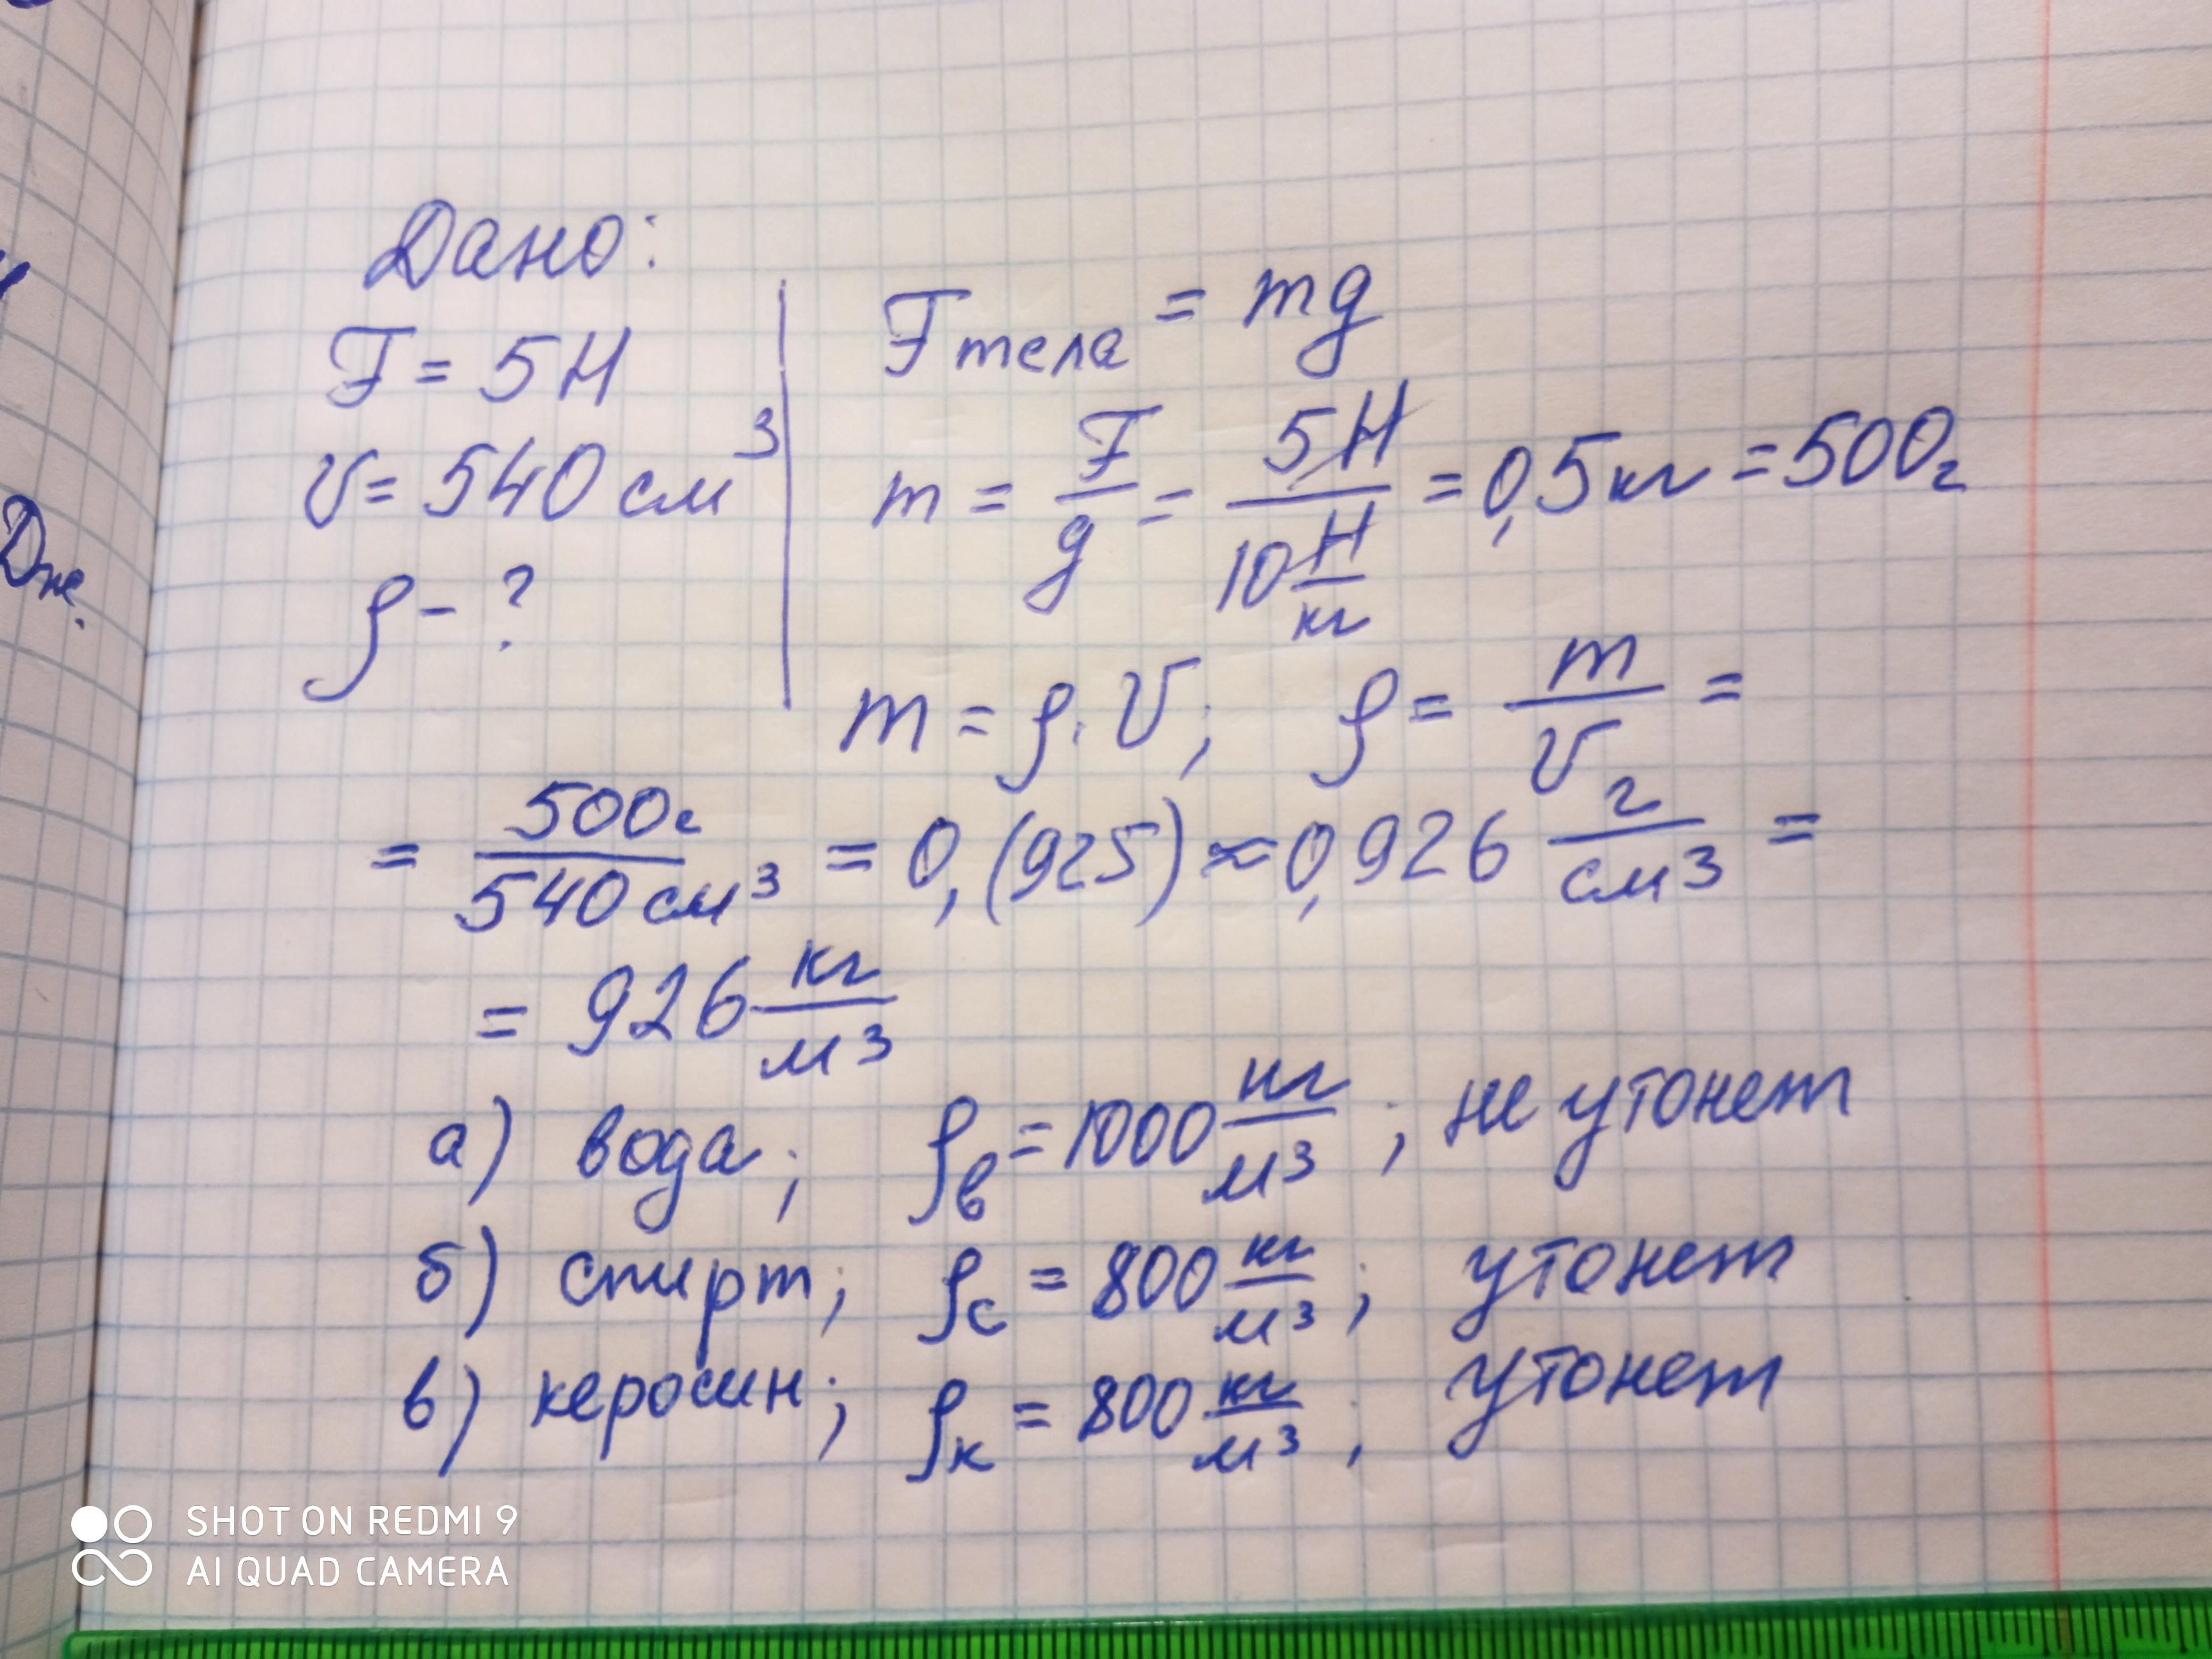 Дано:
F = 5Н
V = 540 см³
ρ - ?
F тела = mg
m = F/g = 5Н / 10 Н/кг = 0,5 кг = 500 г
m = ρ · V; ρ = m/V =
= 500 г / 540 см³ = 0,(925) ≈ 0,926 г/см³ =
= 926 кг/м³
а) вода; ρв = 1000 кг/м³; не утонет
б) спирт; ρс = 800 кг/м³; утонет
в) керосин; ρк = 800 кг/м³; утонет
SHOT ON REDMI 9
AI QUAD CAMERA